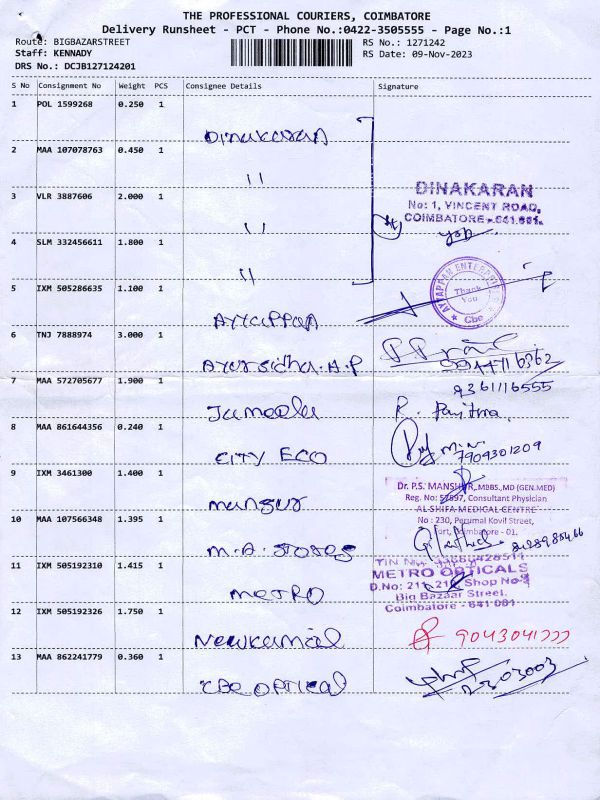 THE PROFESSIONAL COURIERS, COIMBATORE
Delivery Runsheet - PCT - Phone No.:0422-3505555 - Page No.:1
Route: BIGBAZARSTREET RS No.: 1271242
Staff: KENNADY RS Date: 09-Nov-2023
DRS No.: DCJB127124201
S No Consignment No Weight PCS Consignee Details Signature
1 POL 1599268 0.250 1
Dinakaran
2 MAA 107078763 0.450 1
"
DINAKARAN
3 VLR 3887606 2.000 1
No: 1, VINCENT ROAD,
COIMBATORE - 641 001.
"
4 SLM 332456611 1.800 1
"
AYYAPPAN ENTERPRISES
Thank You
Cbe
5 IXM 505286635 1.100 1
AYYAPPAN
6 TNJ 7888974 3.000 1
Ayursidha. A.P
9361116555
7 MAA 572705677 1.900 1
Jameela R. Pavithra
8 MAA 861644356 0.240 1
7909301209
CITY ECO
9 IXM 3461300 1.400 1
Dr. P.S. MANSHUR, MBBS.,MD (GEN.MED)
Reg. No: 57897, Consultant Physician
mansur
AL SHIFA MEDICAL CENTRE
10 MAA 107566348 1.395 1
No : 230, Perumal Kovil Street,
Fort, Coimbatore - 01.
M.A. STORES
11 IXM 505192310 1.415 1
METRO OPTICALS
Shop No
METRO
Big Bazaar Street.
Coimbatore - 641 001
12 IXM 505192326 1.750 1
Newkamal
13 MAA 862241779 0.360 1
CBE OPTICAL